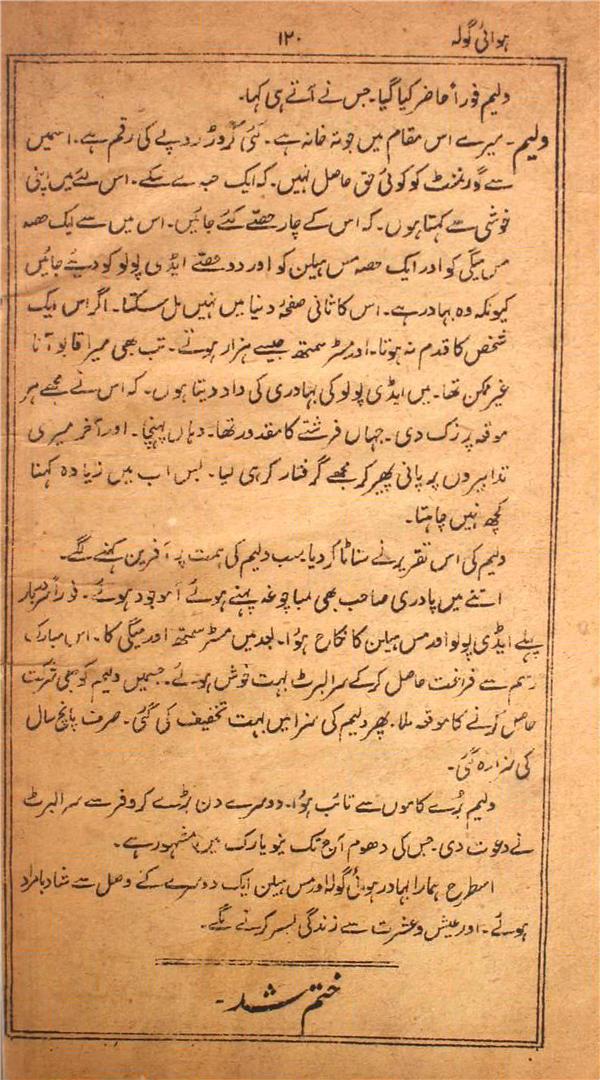 ہوائی گولہ
۱۲۰
ولیم فوراً حاضر کیا گیا۔ جس نے آتے ہی کہا۔
ولیم۔ میرے اس مقام میں جو تہ خانہ ہے۔ کئی کروڑ روپے کی رقم ہے۔ اسمیں
سے گورنمنٹ کو کوئی حق حاصل نہیں۔ کہ ایک حبہ لے سکے۔ اس لئے میں اپنی
خوشی سے کہتا ہوں۔ کہ اس کے چار حصّے کئے جائیں۔ اس میں سے ایک حصہ
مس میگی کو اور ایک حصہ مس ہیلن کو اور دو حصّے ایڈی پولو کو دیئے جائیں
کیونکہ وہ بہادر ہے۔ اس کا ثانی صفحۂ دنیا میں نہیں مل سکتا۔ اگر اس ایک
شخص کا قدم نہ ہوتا۔ اور مسٹر سمتھ جیسے ہزار ہوتے۔ تب بھی میرا قابو آنا
غیر ممکن تھا۔ میں ایڈی پولو کی بہادری کی داد دیتا ہوں۔ کہ اس نے مجھے ہر
موقعہ پر زک دی۔ جہاں فرشتے کا مقدور تھا۔ وہاں پہنچا۔ اور آخر میری
تدابیروں پر پانی پھیر کر مجھے گرفتار کر ہی لیا۔ بس اب میں زیادہ کہنا
کچھ نہیں چاہتا۔
ولیم کی اس تقریر نے سناٹا کر دیا۔ سب ولیم کی ہمت پر آفرین کہنے لگے۔
اتنے میں پادری صاحب بھی لمبا چوغہ پہنے ہوئے آ موجود ہوئے۔ فوراً سردربار
پہلے ایڈی پولو اور مس ہیلن کا نکاح ہوُا۔ بعد میں مسٹر سمتھ اور میگی کا۔ اس مبارک
رسم سے فراغت حاصل کر کے سر البرٹ بہت خوش ہوئے۔ جسمیں ولیم کو بھی شرکت
حاصل کرنے کا موقعہ ملا۔ پھر ولیم کی سزا میں بہت تخفیف کی گئی۔ صرف پانچ سال
کی سزا رہ گئی۔
ولیم بُرے کاموں سے تائب ہوُا۔ دوسرے دن بڑے کروفر سے سر البرٹ
نے دعوت دی۔ جس کی دھوم آج تک نیویارک میں مشہور ہے۔
اسطرح ہمارا بہادر ہوائی گولہ اور مس ہیلن ایک دوسرے کے وصل سے شاد بامراد
ہوئے۔ اور عیش و عشرت سے زندگی بسر کرنے لگے۔
ختم شد۔